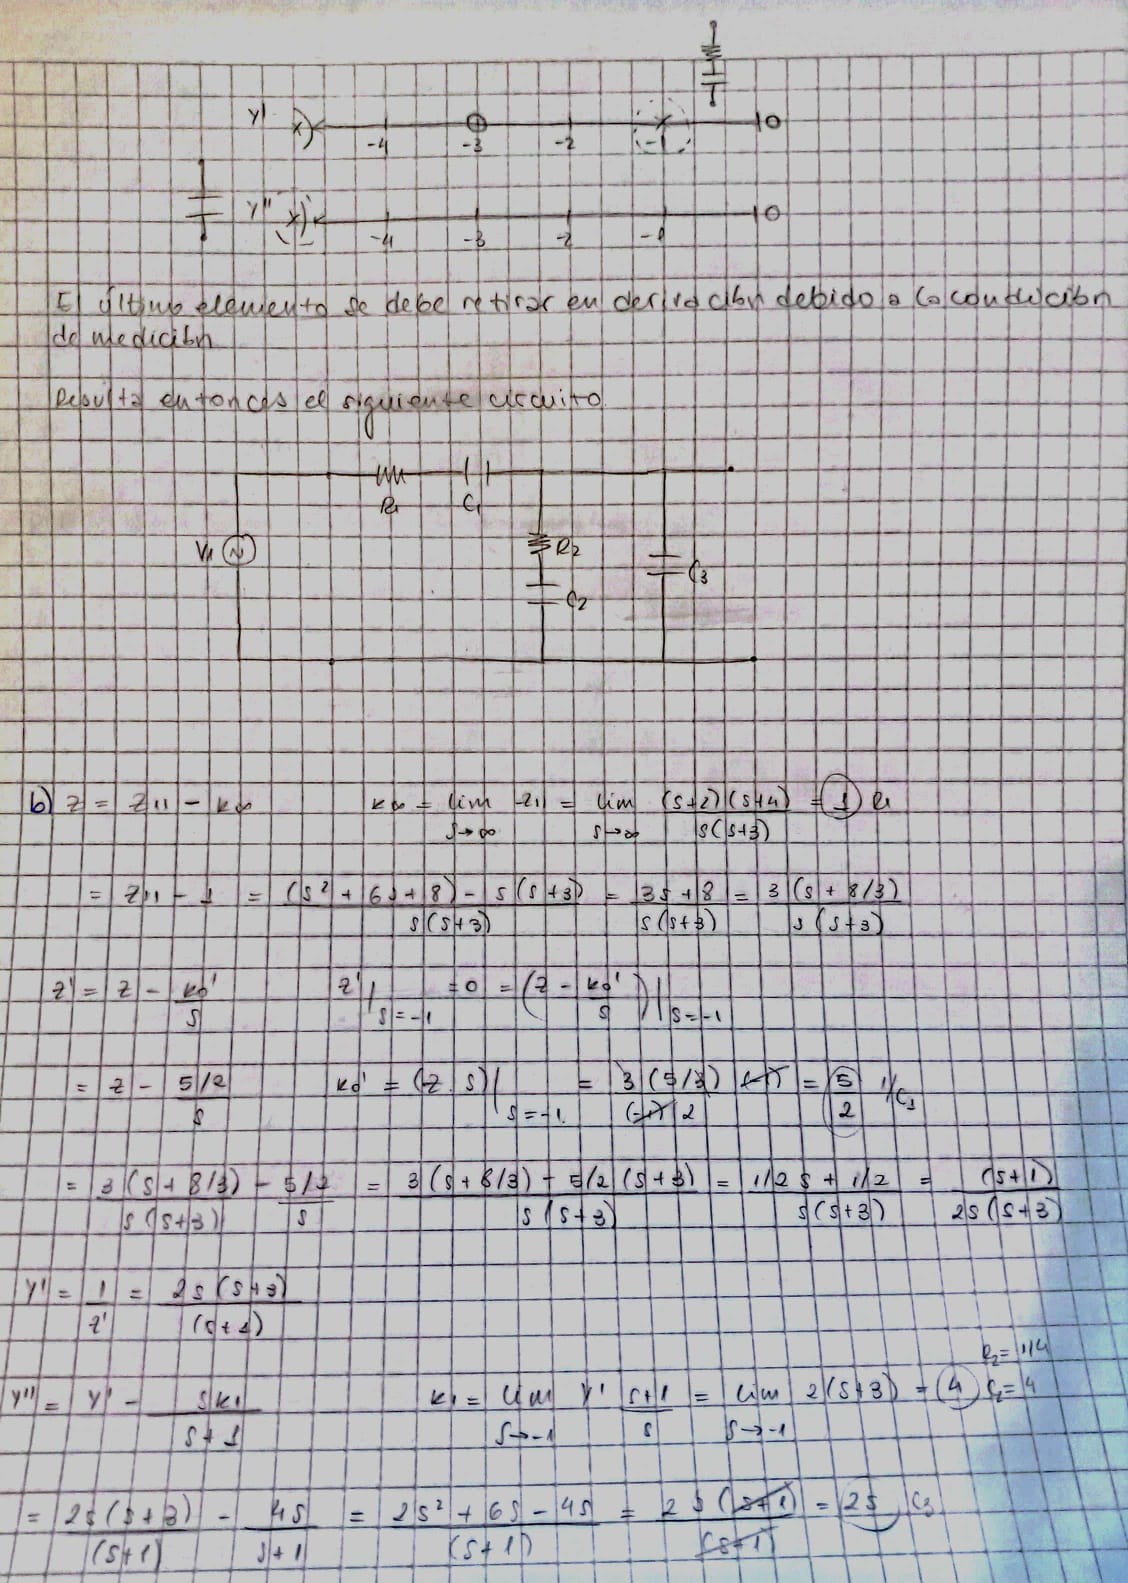 Y' X) -4 -3 -2 -1 0
Y'' X) -4 -3 -2 -1 0
El último elemento se debe retirar en derivación debido a la condición
de medición
Resulta entonces el siguiente circuito
R1 C1
V1 R2 C3
C2
b) Z = Z11 - K∞ K∞ = lim Z11 = lim (s+2)(s+4) / s(s+3) = 1 R1
s→∞ s→∞
= Z11 - 1 = (s² + 6s + 8) - s(s+3) / s(s+3) = 3s+8 / s(s+3) = 3(s+8/3) / s(s+3)
Z' = Z - K0' / s Z' | s=-1 = 0 = (Z - K0' / s) | s=-1
= Z - 5/2 / s K0' = (Z.s) | s=-1 = 3(5/3) (-1) / (-1) 2 = 5/2 1/C1
= 3(s+8/3) / s(s+3) - 5/2 / s = 3(s+8/3) - 5/2(s+3) / s(s+3) = 1/2 s + 1/2 / s(s+3) = (s+1) / 2s(s+3)
Y' = 1 / Z' = 2s(s+3) / (s+1)
R2 = 1/4
Y'' = Y' - sK1 / s+1 K1 = lim Y' s+1 / s = lim 2(s+3) = 4 C2 = 4
s→-1 s→-1
= 2s(s+3) / (s+1) - 4s / s+1 = 2s² + 6s - 4s / (s+1) = 2s(s+1) / (s+1) = 2s C3